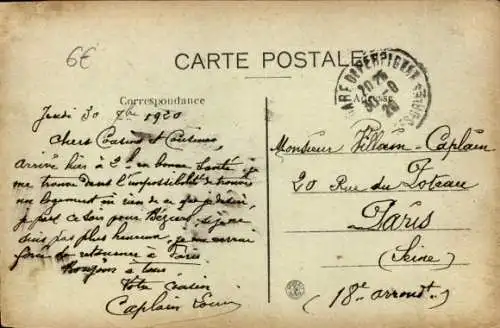 6€
CARTE POSTALE
GARE DE PERPIGNAN
20 25
30 - 9
20
Correspondance
Adresse
Jeudi 30 7bre 1920
Chers Cousins et Cousines,
Arrivé hier à 2 h en bonne santé
me trouve dans l'impossibilité de trouver
un logement ni rien de ce que je désire
je pars ce soir pour Béziers si je ne
suis pas plus heureux, je me verrai
forcé de retourner à Paris
Bonjour à tous
Votre cousin
Caplain Louis
Monsieur Villain-Caplain
20 Rue du Poteau
Paris
(Seine)
(18e arrondt)